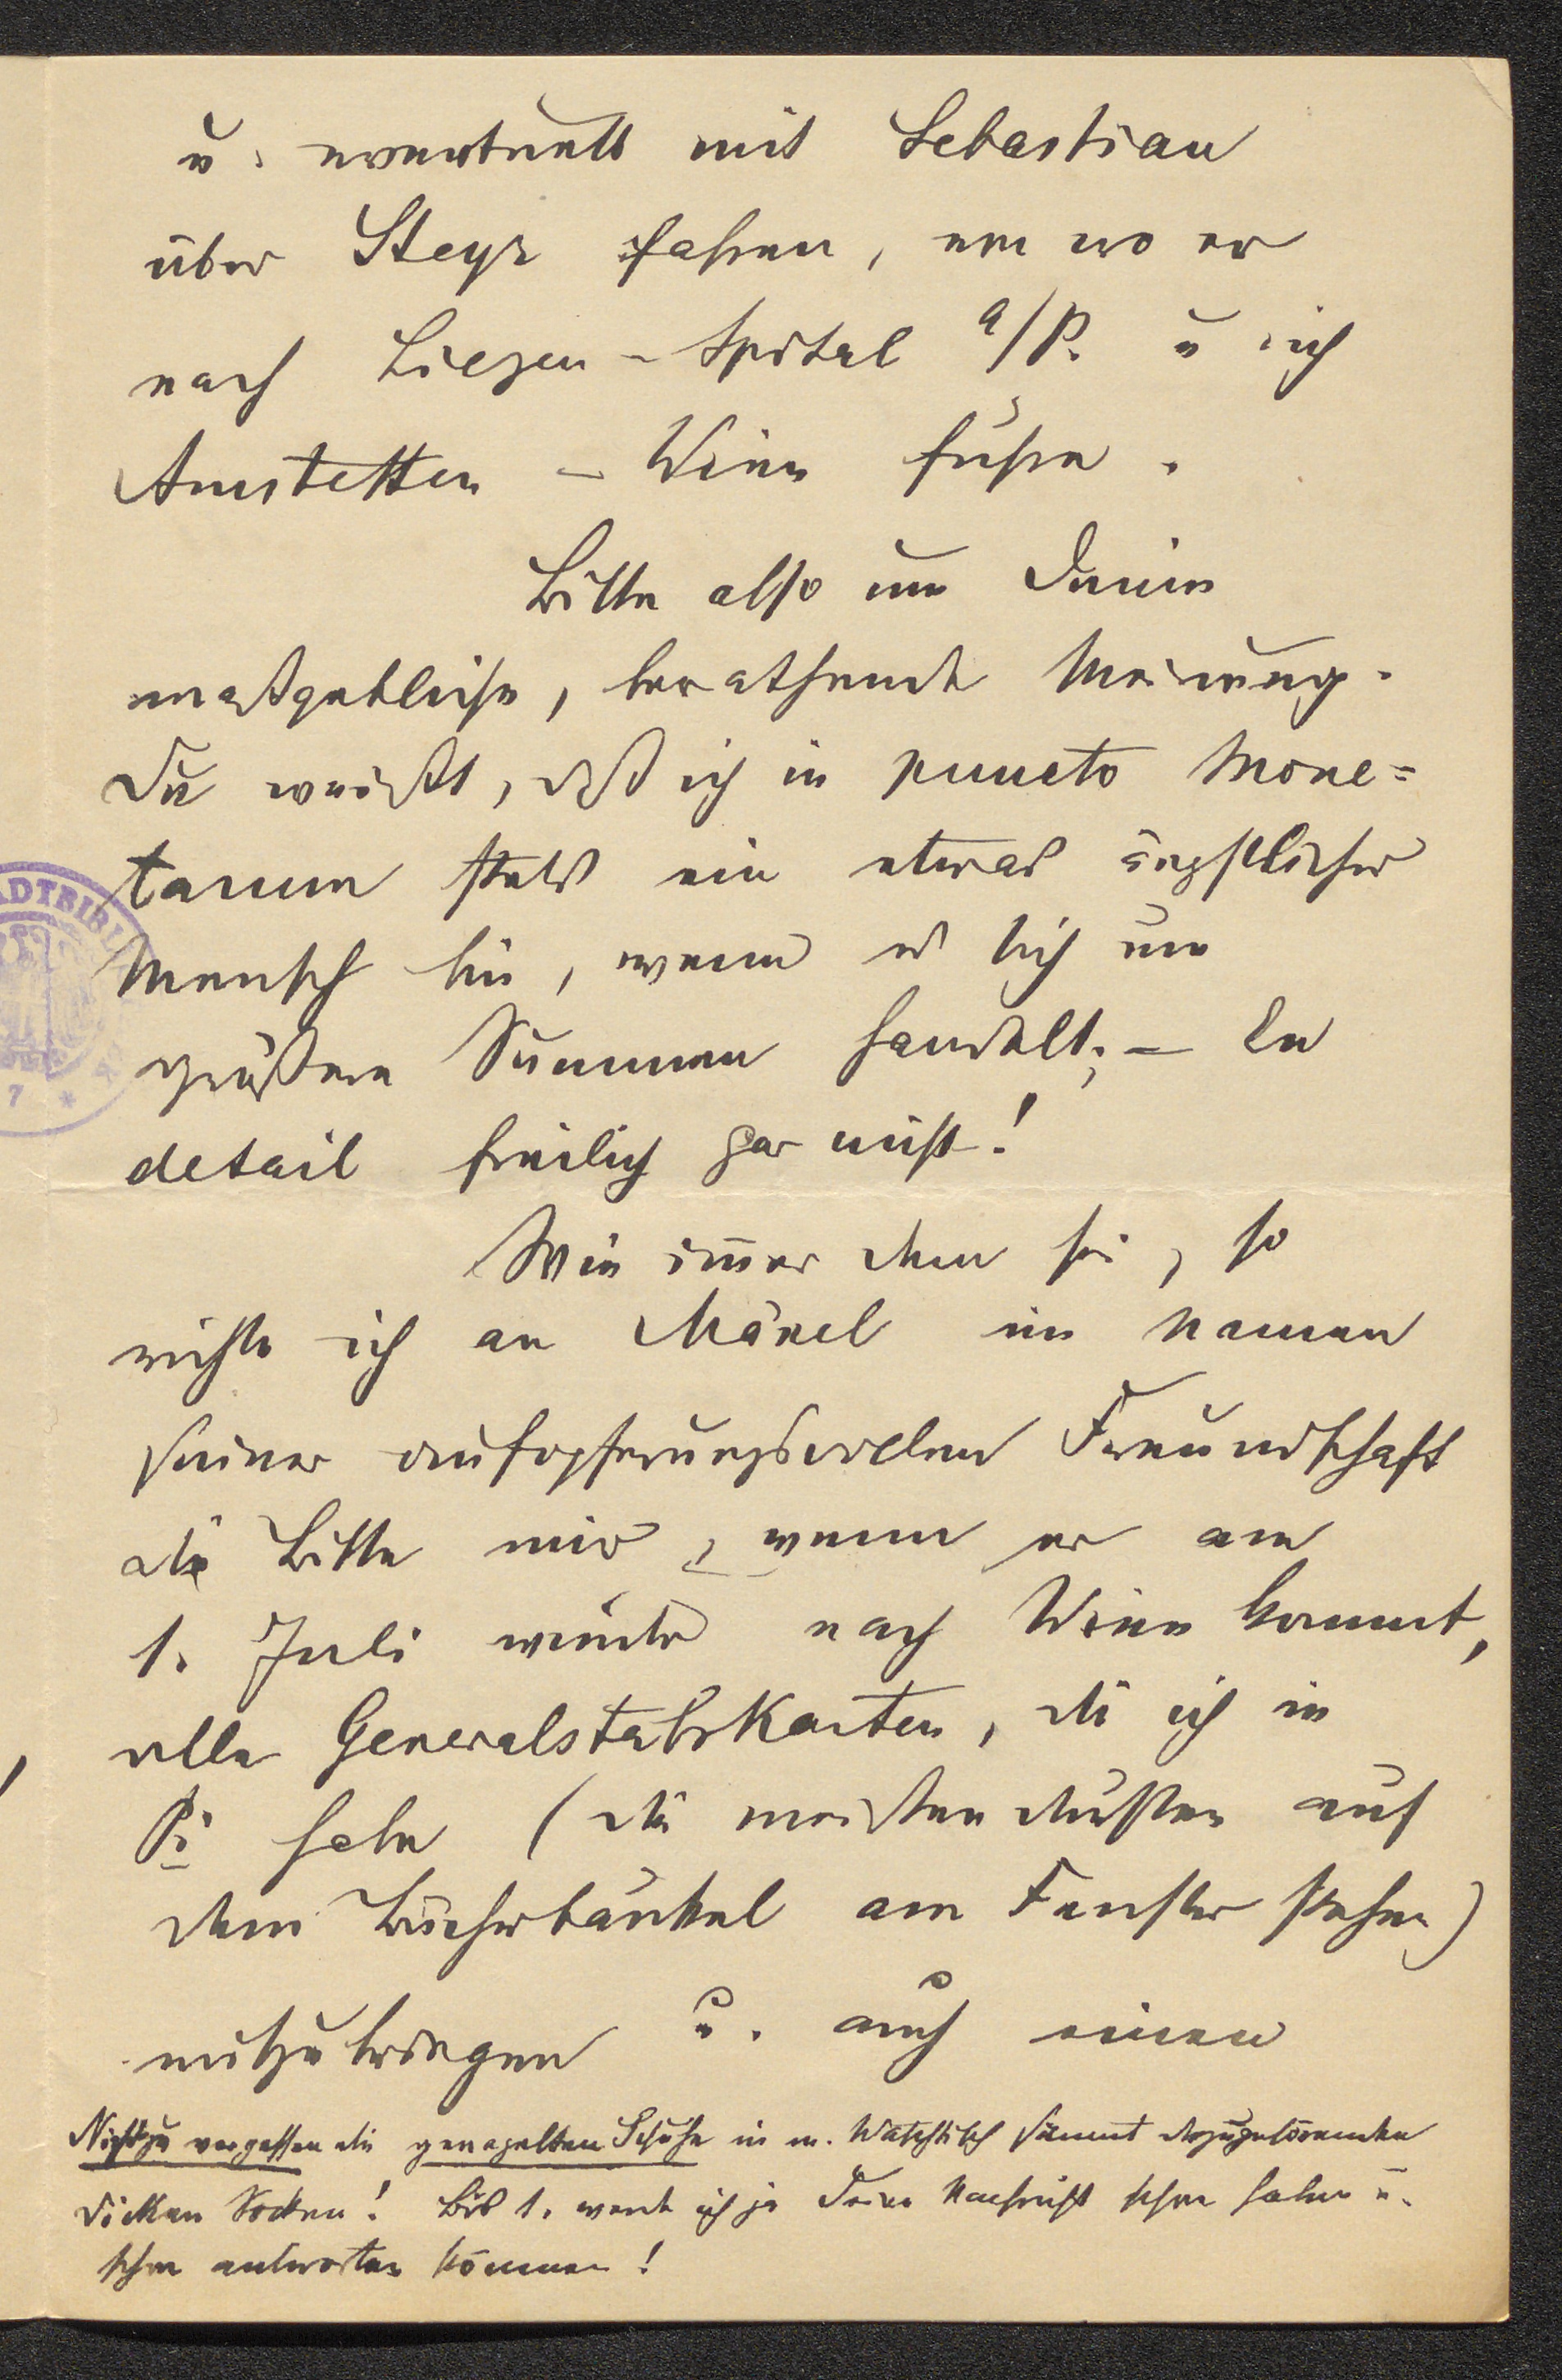 u. eventuell mit Sebastian
über Steyr fahren, von wo er
nach Liezen-Spital a/P. u ich
Amstetten – Wien führe.
Bitte also um Deine
maßgebliche, berathende Meinung.
Du weißt, daß ich in puncto Mone=
tarum stets ein etwas ängstlicher
Mensch bin, wenn es sich um
größere Summen handelt; – En
detail freilich gar nicht!
Wie im̅er dem sei, so
richte ich an Mänel im Namen
seiner aufopferungsvollen Freundschaft
die Bitte mir, wenn er am
1. Juli wieder nach Wien kommt,
alle Generalstabskarten, die ich in
Pi habe (die meisten dürften auf
dem Bücherbänkel am Fenster stehen)
mitzubringen u. auch einen
Nicht zu vergessen die genagelten Schuhe in m. Waschtisch sammt dazugehörenden
dicken Socken! Bis 1. werde ich ja Deine Nachricht schon haben u.
schon antworten können!